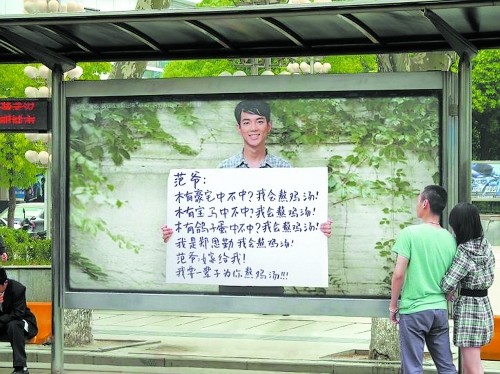 范爷:
木有豪宅中不中?我会熬鸡汤!
木有宝马中不中?我会熬鸡汤!
木有鸽子蛋中不中?我会熬鸡汤!
我是郑思勤 我会熬鸡汤!
范爷,嫁给我!
我要一辈子为你熬鸡汤!!!